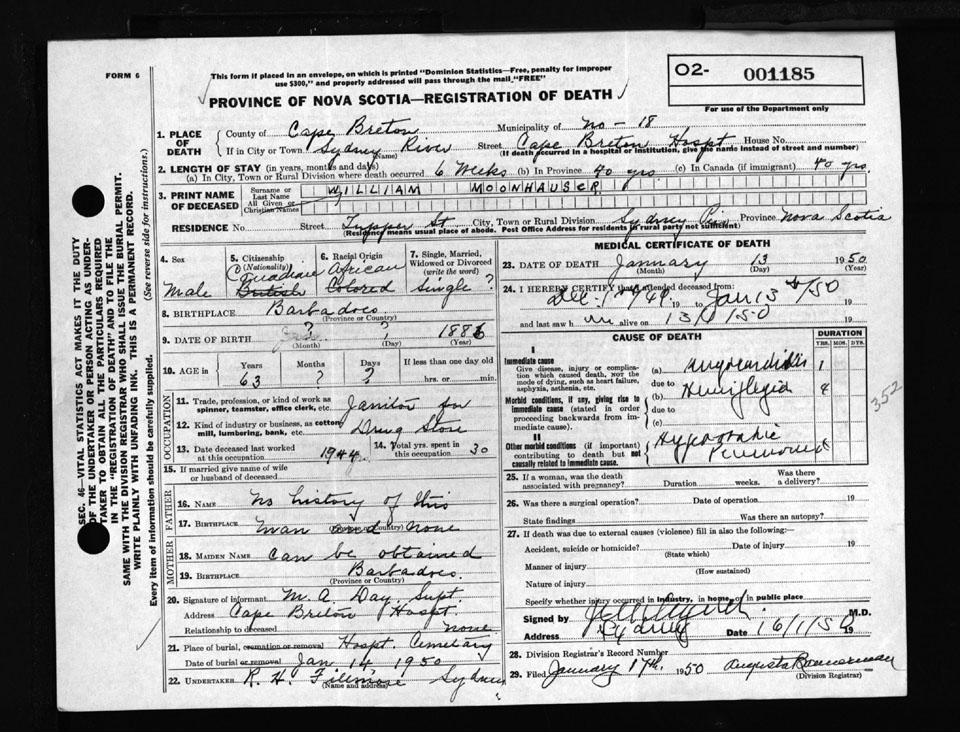 FORM 6
This form if placed in an envelope, on which is printed "Dominion Statistics—Free, penalty for improper
use $300," and properly addressed will pass through the mail "FREE"
02- 001185
For use of the Department only
PROVINCE OF NOVA SCOTIA—REGISTRATION OF DEATH
1. PLACE OF DEATH { County of Cape Breton Municipality of No - 18
If in City or Town Sydney River (Name) Street Cape Breton Hospt House No.
(If death occurred in a hospital or institution, give the name instead of street and number)
2. LENGTH OF STAY (in years, months and days)
(a) In City, Town or Rural Division where death occurred 6 Weeks (b) In Province 40 yrs (c) In Canada (if immigrant) 40 yrs.
3. PRINT NAME OF DECEASED { Surname or Last Name WILLIAM MOONHAUSER
All Given or Christian Names
RESIDENCE No. Street Tupper St City, Town or Rural Division Sydney Province Nova Scotia
(Residence means usual place of abode. Post Office Address for residents in rural parts not sufficient)
4. Sex Male
5. Citizenship (Nationality) Canadian British
6. Racial Origin African Colored
7. Single, Married, Widowed or Divorced (write the word) Single ?
8. BIRTHPLACE Barbadoes
(Province or Country)
9. DATE OF BIRTH ? (Month) ? (Day) 1886 (Year)
10. AGE in { Years 63 Months ? Days ? If less than one day old hrs. or min.
OCCUPATION
11. Trade, profession, or kind of work as spinner, teamster, office clerk, etc. Janitor in
12. Kind of industry or business, as cotton mill, lumbering, bank, etc. Drug Store
13. Date deceased last worked at this occupation 1944 14. Total yrs. spent in this occupation 30
15. If married give name of wife or husband of deceased
FATHER
16. NAME No history of this
17. BIRTHPLACE man (Province or Country) none
MOTHER
18. MAIDEN NAME can be obtained
19. BIRTHPLACE Barbadoes.
(Province or Country)
20. Signature of informant M. A. Day, Supt
Address Cape Breton Hospt.
Relationship to deceased None
21. Place of burial, cremation or removal Hospt. Cemetary
Date of burial or removal Jan 14, 1950
22. UNDERTAKER R. H. Fillmore Sydney
(Name and address)
MEDICAL CERTIFICATE OF DEATH
23. DATE OF DEATH January (Month) 13 (Day) 1950 (Year)
24. I HEREBY CERTIFY that I attended deceased from:
Dec. 1st 1949 19 to Jan 13th/50 19
and last saw h im alive on 13/1/50 19
CAUSE OF DEATH
DURATION
YRS. MOS. DYS.
I
Immediate cause
Give disease, injury or complication which caused death, not the mode of dying, such as heart failure, asphyxia, asthenia, etc.
(a) Myocarditis 1
due to
Morbid conditions, if any, giving rise to immediate cause (stated in order proceeding backwards from immediate cause).
(b) Hemiplegia 4
due to
(c)
II
Other morbid conditions (if important) contributing to death but not causally related to immediate cause.
Hypostatic
352
25. If a woman, was the death associated with pregnancy? Duration weeks. Was there a delivery?
26. Was there a surgical operation? Date of operation 19
State findings Was there an autopsy?
27. If death was due to external causes (violence) fill in also the following:
Accident, suicide or homicide? Date of injury 19
(State which)
Manner of injury
(How sustained)
Nature of injury
Specify whether injury occurred in industry, in home, or in public place
Signed by M.D.
Address Sydney Date 16/1/50 19
28. Division Registrar's Record Number
29. Filed January 17th. 1950 Augusta Bannerman
(Division Registrar)
SEC. 46—VITAL STATISTICS ACT MAKES IT THE DUTY
OF THE UNDERTAKER OR PERSON ACTING AS UNDER-
TAKER TO OBTAIN ALL THE PARTICULARS REQUIRED
IN THE "REGISTRATION OF DEATH" AND TO FILE THE
SAME WITH THE DIVISION REGISTRAR WHO SHALL ISSUE THE BURIAL PERMIT.
WRITE PLAINLY WITH UNFADING INK. THIS IS A PERMANENT RECORD.
Every item of information should be carefully supplied. (See reverse side for instructions.)